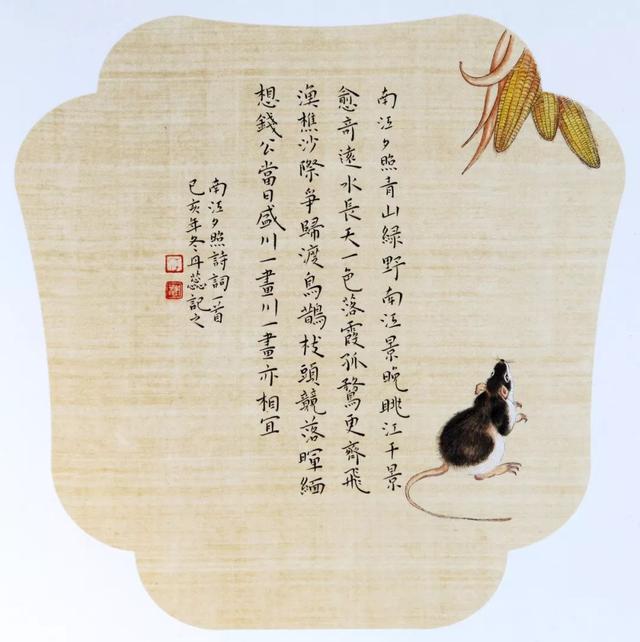 南江夕照青山綠野南江景晚眺江干景
愈奇遠水長天一色落霞孤鶩更齊飛
漁樵沙際爭歸渡鳥鵲枝頭競落暉緬
想錢公當日盛川一畫川一畫亦相宜
南江夕照詩詞一首
己亥年冬丹蕊記之